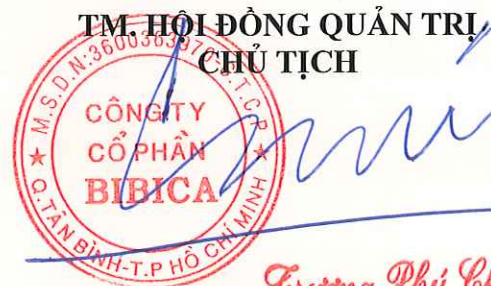 TM. HỘI ĐỒNG QUẢN TRỊ
CHỦ TỊCH
M.S.D.N:3600363970-C.T.C.P
CÔNG TY
CỔ PHẦN
BIBICA
Q.TÂN BÌNH-T.P HỒ CHÍ MINH
Trương Phú